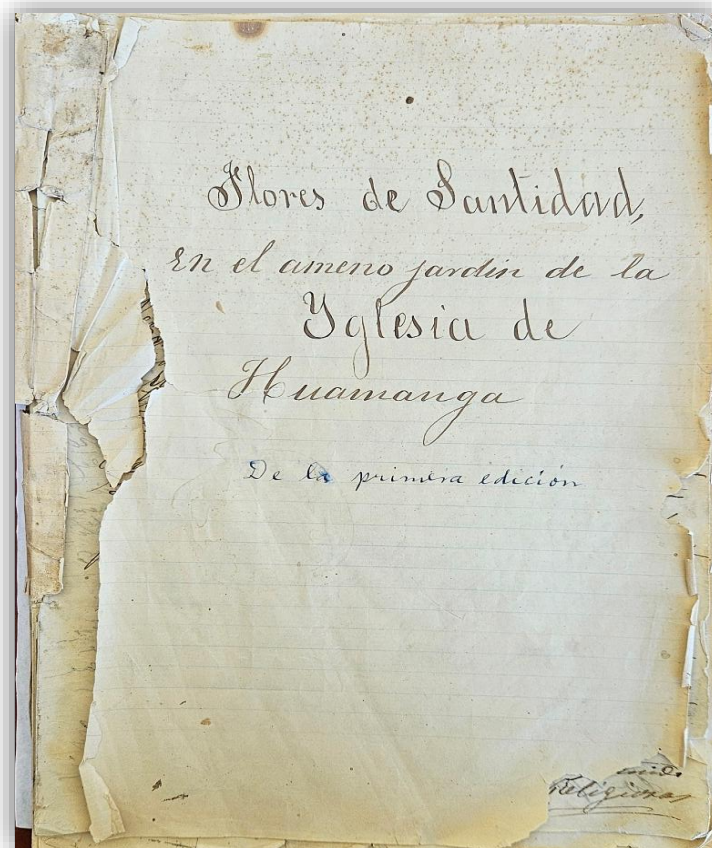 Flores de Santidad,
en el ameno jardin de la
Yglesia de
Huamanga
De la primera edición
Religiosas